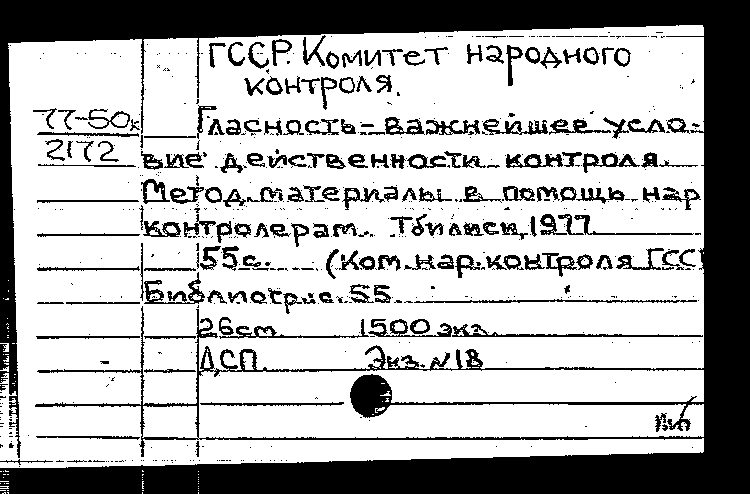 ГССР. Комитет народного
контроля.
77-50к
2172
Гласность – важнейшее усло-
вие действенности контроля.
Метод. материалы в помощь нар
контролерам. Тбилиси, 1977.
55 с. (Ком. нар. контроля ГССР
Библиогр.: с. 55
26 см. 1500 экз.
ДСП. Экз. №18